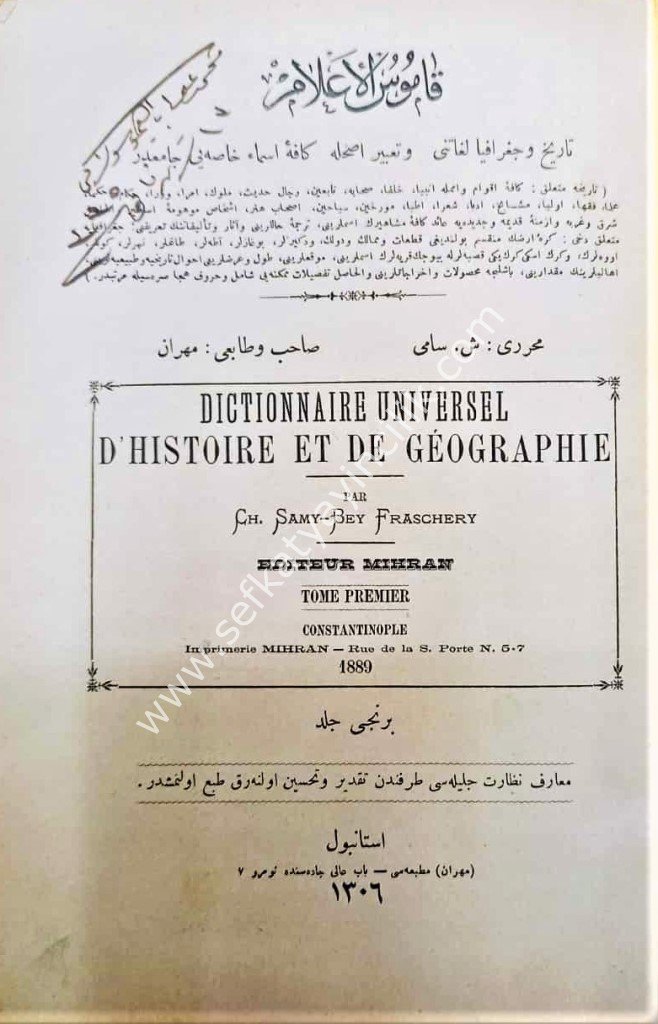 قاموس الاعلام
تاريخ و جغرافيا لغاتنى و تعبير اصحله كافهٔ اسماء خاصه‌يى جامعدر
( تاريخه متعلق : كافهٔ اقوام و اممله انبيا، خلفا، صحابه، تابعين، رجال حديث، ملوك، امرا، وزرا،
علما، فقها، اوليا، مشايخ، ادبا، شعرا، اطبا، مورخين، سياحين، اصحاب هنر، اشخاص موهومهٔ
شرق و غربه و ازمنهٔ قديمه و جديده‌يه عائد كافهٔ مشاهيرك اسملرينى، ترجمهٔ حاللرينى و آثار و تأليفاتنك تعريفنى؛ جغرافيايه
متعلق دخى : كرهٔ ارضك منقسم بولنديغى قطعات و ممالك و دولك، و دكيزلر، بوغازلر، آطه‌لر، طاغلر، نهرلر، كوللر،
اووه‌لرك، و كرك اسكى كرك يكى قصبه‌لرله بيوجك قريه‌لرك اسملرينى، موقعلرينى، طول و عرضلرينى احوال تاريخيه و طبيعيه‌لرينى،
اهاليلرينك مقدارينى، باشليجه محصولات و اخراجاتلرينى والحاصل تفصيلات ممكنه‌يى شامل و حروف هجا صره‌سيله مرتبدر. )
محررى : ش . سامى صاحب و طابعى : مهران
DICTIONNAIRE UNIVERSEL
D'HISTOIRE ET DE GÉOGRAPHIE
PAR
CH. SAMY-BEY FRASCHERY
EDITEUR MIHRAN
TOME PREMIER
CONSTANTINOPLE
Imprimerie MIHRAN — Rue de la S. Porte N. 5-7
1889
برنجى جلد
معارف نظارت جليله‌سى طرفندن تقدير و تحسين اولنه‌رق طبع اولنمشدر .
استانبول
(مهران) مطبعه‌سى — باب عالى جاده‌سنده نومرو ٧
١٣٠٦
www.sefkatyayincilik.com